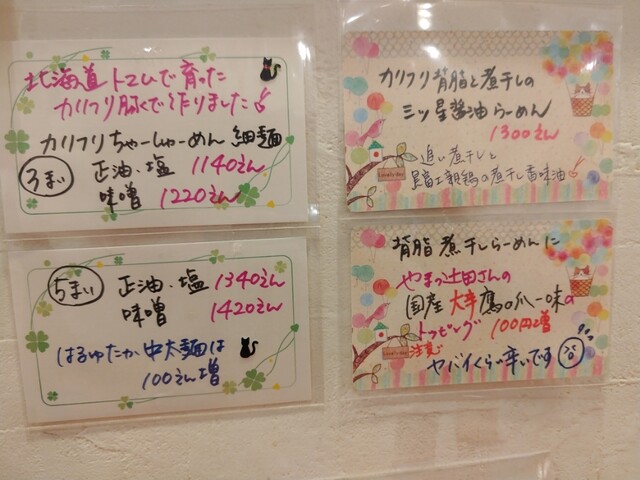 北海道トコムで育った
カリフリ豚くで作りました
カリフリちゃーしゅーめん 細麺
3まい 正油、塩 1140えん
味噌 1220えん
5まい 正油、塩 1340えん
味噌 1420えん
はるゆたか中太麺は
100えん増
カリフリ背脂と煮干しの
三ツ星醤油らーめん
1300えん
追い煮干しと
冨士朝鶏の煮干し香味油
Lovely day
背脂煮干しらーめんに
やまつ辻田さんの
国産 本鷹の爪一味の
トッピング 100円増
注意 ヤバイくらい辛いです
Lovely day